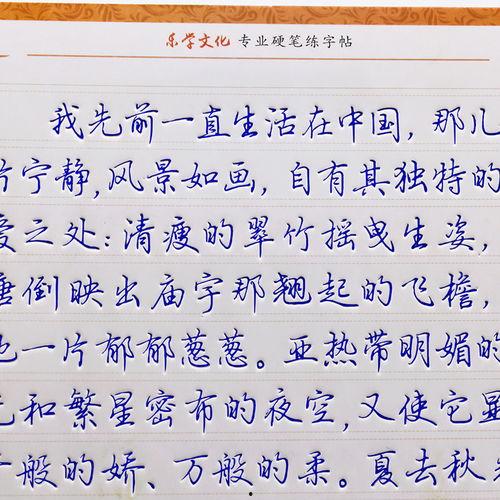 乐学文化 专业硬笔练字帖
我先前一直生活在中国，那儿
片宁静，风景如画，自有其独特的
爱之处：清瘦的翠竹摇曳生姿，
塘倒映出庙宇那翘起的飞檐，
地一片郁郁葱葱。亚热带明媚的
光和繁星密布的夜空，又使它显
千般的娇、万般的柔。夏去秋